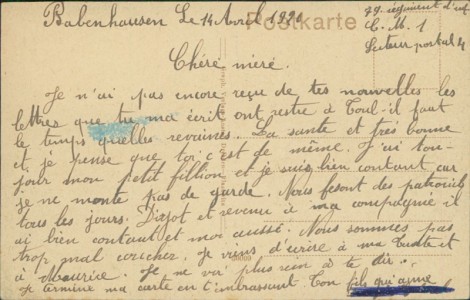 Babenhausen Le 14 Avril 1920
Postkarte
79 régiment d'inf
C. M. 1
Secteur postal 4
Chéré méré.
Je n'ai pas encore reçu de tes nouvelles les
lettres que tu ma écrit ont restre à Toul - il faut
le temps quelles revaines. La sante et très bonne
et je pense que toi c'est de même. J'ai tou-
jour mon petit fillion et je suis bien contant car
je ne monte pas de garde. Nous fesont des patrouils
tous les jours. et revenu à ma compagnie il
ai bien contant et moi aussi. Nous sommes pas
trop mal coucher. Je viens d'écrire à ma Tante et
à Maurice. Je ne voi plus rien à te dir.
Je termine ma carte en t'embrassant. Ton fils qui aime